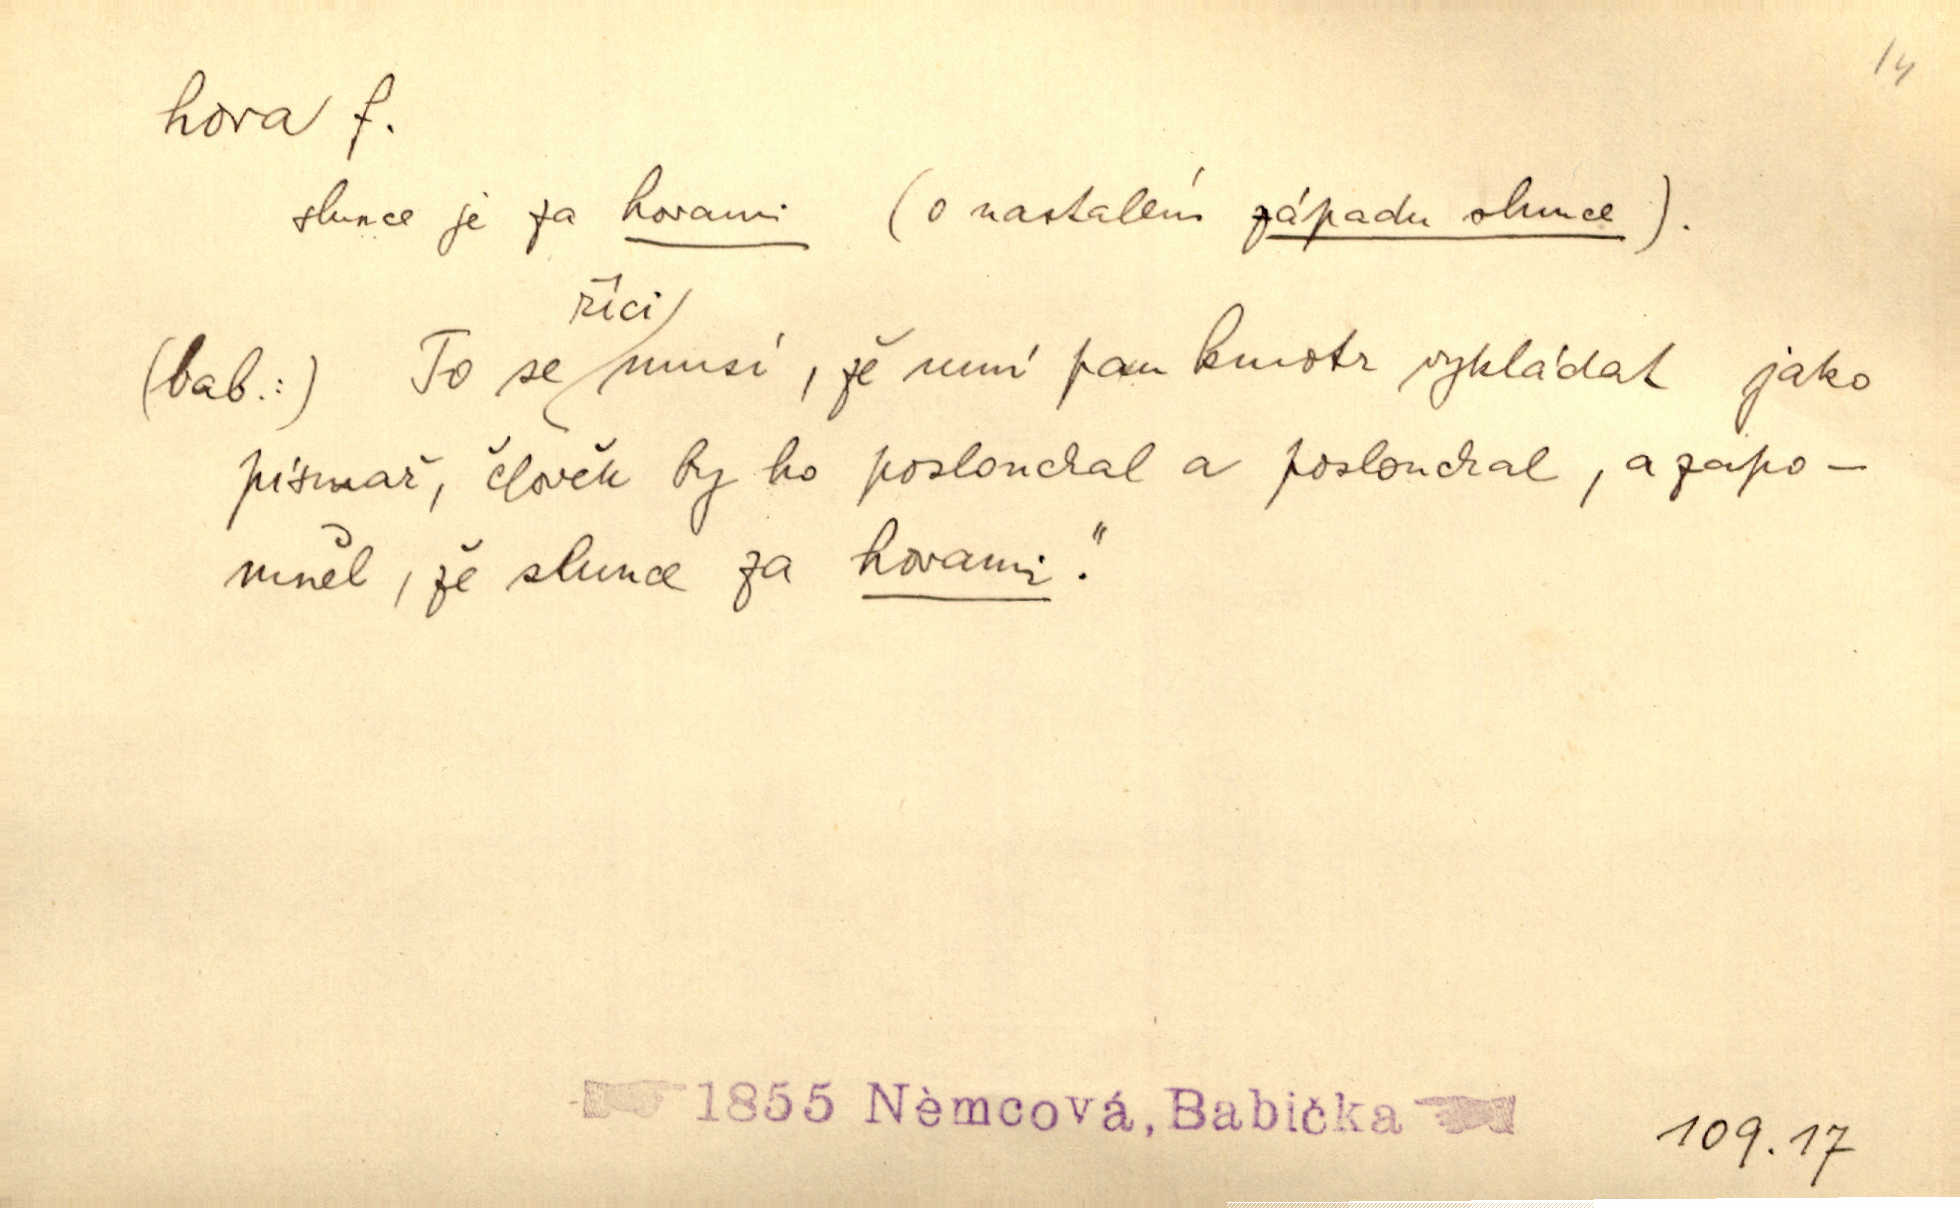 14
hora f.
slunce je za horami (o nastalém západu slunce).
(bab.:) To se říci musí, že umí pan kmotr vykládat jako
písmař, člověk by ho poslouchal a poslouchal, a zapo-
mněl, že slunce za horami."
1855 Němcová, Babička
109.17